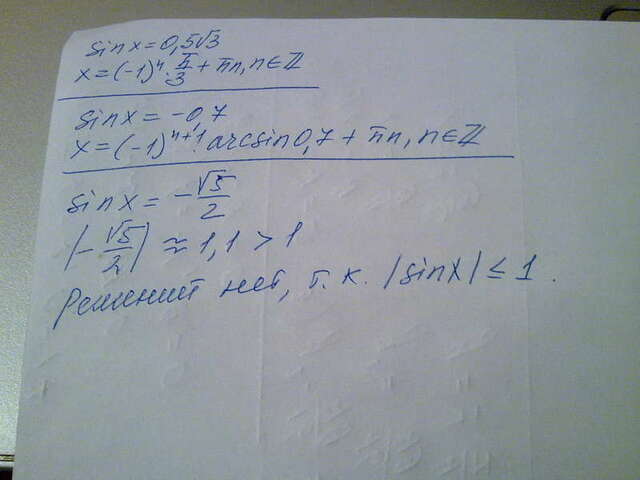 sinx = 0,5√3
x = (-1)ⁿ · π/3 + πn, n ∈ ℤ
sinx = -0,7
x = (-1)ⁿ⁺¹ · arcsin0,7 + πn, n ∈ ℤ
sinx = -√5/2
|-√5/2| ≈ 1,1 > 1
Решений нет, т. к. |sinx| ≤ 1.